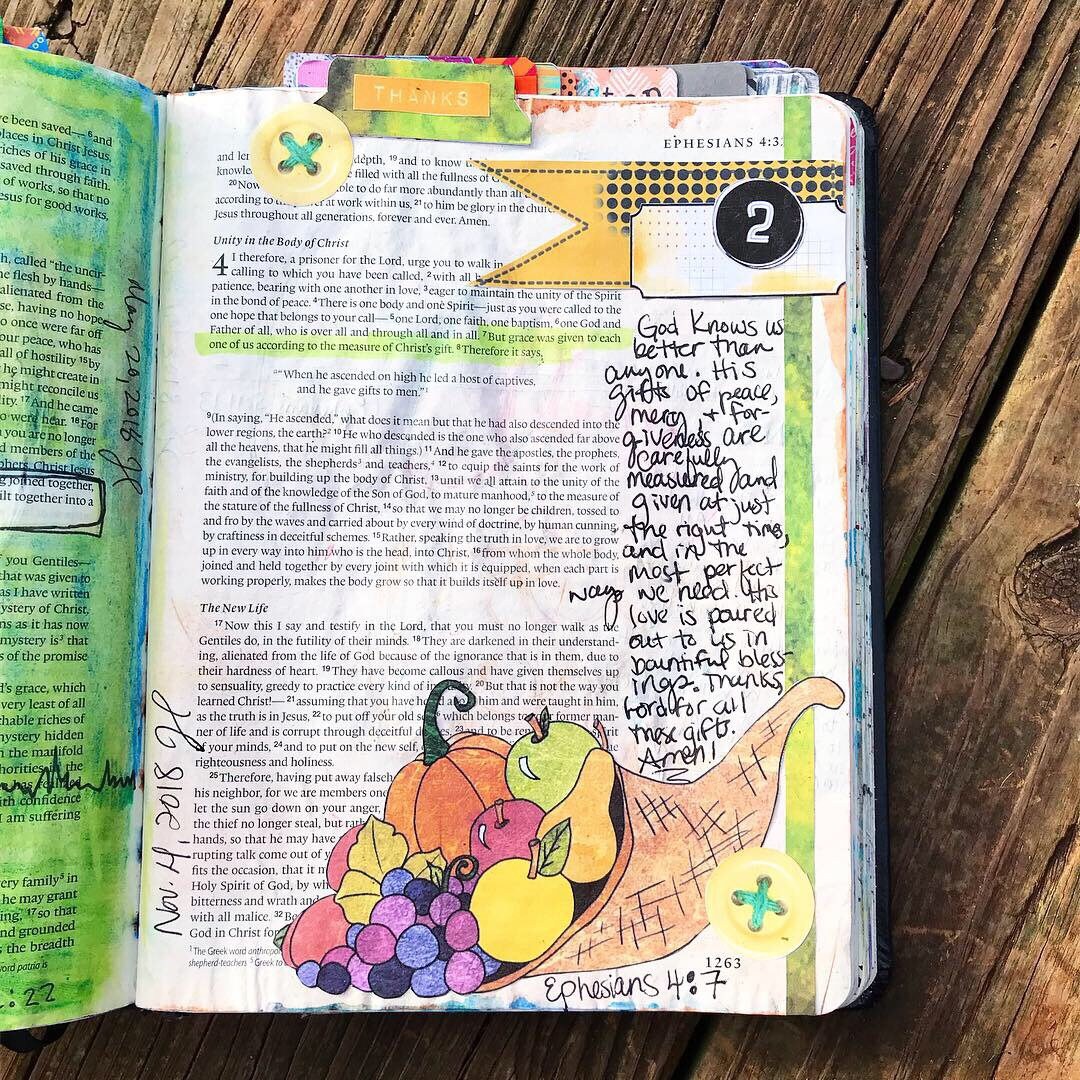 ve been saved—⁶and
places in Christ Jesus,
riches of his grace in
saved through faith.
of works, so that no
esus for good works,
h, called "the uncir-
he flesh by hands—
alienated from the
se, having no hope
o once were far off
our peace, who has
all of hostility ¹⁵by
he might create in
might reconcile us
lity. ¹⁷And he came
o were near. ¹⁸For
you are no longer
d members of the
phets, Christ Jesus
g joined together,
ilt together into a
you Gentiles—
that was given to
as I have written
ystery of Christ,
ns as it has now
mystery is³ that
s of the promise
d's grace, which
very least of all
hable riches of
mystery hidden
the manifold
horities in the
as realized
th confidence
I am suffering
ery family³ in
he may grant
ing, ¹⁷so that
nd grounded
s the breadth
ord patria is
:22
May 20, 2016
THANKS
EPHESIANS 4:3
and depth, ¹⁹and to know
knowle filled with all the fullness of G
²⁰Now ble to do far more abundantly than all
according to the er at work within us, ²¹to him be glory in the churc
Jesus throughout all generations, forever and ever. Amen.
Unity in the Body of Christ
4 I therefore, a prisoner for the Lord, urge you to walk in
calling to which you have been called, ²with all h
patience, bearing with one another in love, ³eager to maintain the unity of the Spirit
in the bond of peace. ⁴There is one body and one Spirit—just as you were called to the
one hope that belongs to your call—⁵one Lord, one faith, one baptism, ⁶one God and
Father of all, who is over all and through all and in all. ⁷But grace was given to each
one of us according to the measure of Christ's gift. ⁸Therefore it says,
"When he ascended on high he led a host of captives,
and he gave gifts to men."¹
⁹(In saying, "He ascended," what does it mean but that he had also descended into the
lower regions, the earth?² ¹⁰He who descended is the one who also ascended far above
all the heavens, that he might fill all things.) ¹¹And he gave the apostles, the prophets,
the evangelists, the shepherds³ and teachers,⁴ ¹²to equip the saints for the work of
ministry, for building up the body of Christ, ¹³until we all attain to the unity of the
faith and of the knowledge of the Son of God, to mature manhood,⁵ to the measure of
the stature of the fullness of Christ, ¹⁴so that we may no longer be children, tossed to
and fro by the waves and carried about by every wind of doctrine, by human cunning,
by craftiness in deceitful schemes. ¹⁵Rather, speaking the truth in love, we are to grow
up in every way into him who is the head, into Christ, ¹⁶from whom the whole body,
joined and held together by every joint with which it is equipped, when each part is
working properly, makes the body grow so that it builds itself up in love.
The New Life
¹⁷Now this I say and testify in the Lord, that you must no longer walk as the
Gentiles do, in the futility of their minds. ¹⁸They are darkened in their understand-
ing, alienated from the life of God because of the ignorance that is in them, due to
their hardness of heart. ¹⁹They have become callous and have given themselves up
to sensuality, greedy to practice every kind of ²⁰But that is not the way you
learned Christ!—²¹assuming that you have him and were taught in him,
as the truth is in Jesus, ²²to put off your old s which belongs to your former man-
ner of life and is corrupt through deceitful ²³and to be
of your minds, ²⁴and to put on the new self,
righteousness and holiness.
²⁵Therefore, having put away falseh
his neighbor, for we are members one
let the sun go down on your anger,
the thief no longer steal, but rath
hands, so that he may have
rupting talk come out of y
fits the occasion, that it m
Holy Spirit of God, by wh
bitterness and wrath and
with all malice. ³²Be
God in Christ for
¹The Greek word anthropoi
shepherd-teachers ⁵Greek to
2
God knows us
better than
anyone. His
gifts of peace,
mercy + for-
giveness are
carefully
measured and
given at just
the right time,
and in the
most perfect
way we need. His
love is poured
out to us in
bountiful bless-
ings. Thanks,
Lord for all
these gifts.
Amen!
Nov. 4, 2018 JG
1263
Ephesians 4:7